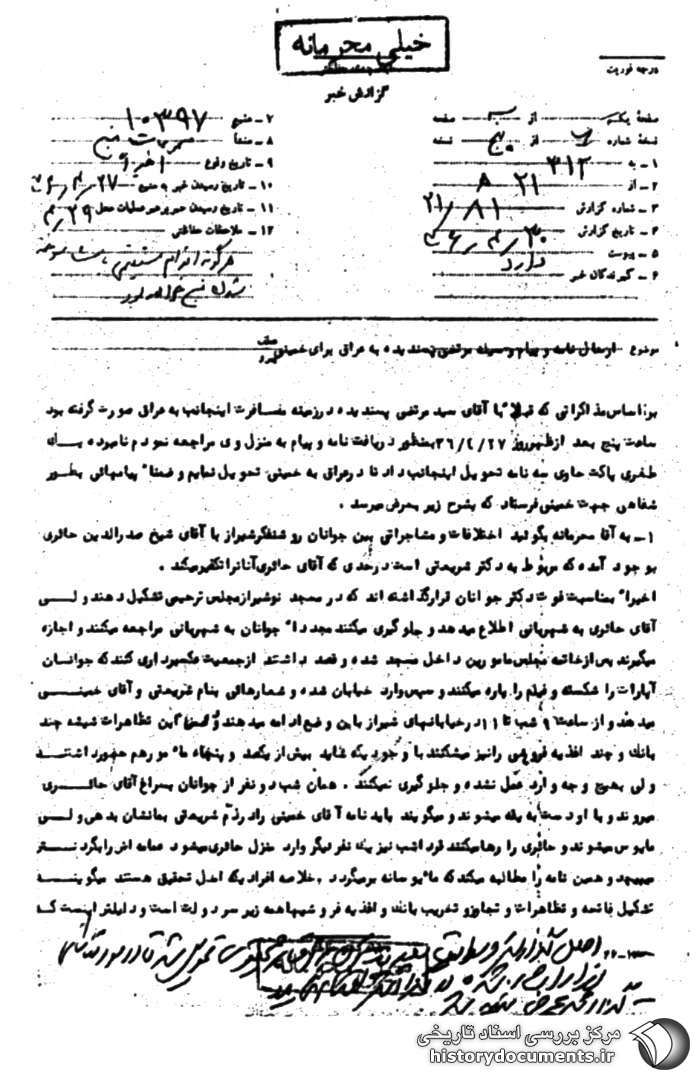 خیلی محرمانه
درجه فوریت
گزارش خبر
صفحه یک از صفحه
نسخه شماره از پنج نسخه
۱ – به ۳۱۲
۲ – از ۲۱ ۵
۳ – شماره گزارش ۲۱/۸۱
۴ – تاریخ گزارش ۳۶/۴/۳۰
۵ – پیوست ندارد
۶ – گیرندگان خبر
۷ – منبع ۱۰۳۹۷
۸ – منشأ
۹ – تاریخ وقوع اخیراً
۱۰ – تاریخ رسیدن خبر به منبع ۳۶/۴/۲۷
۱۱ – تاریخ رسیدن خبر برهبر عملیات محل ۴/۲۹
۱۲ – ملاحظات حفاظتی
هرگونه اقدام مستقیمی
موضوع – ارسال نامه و پیام وسیله مرتضی پسندیده به عراق برای خمینی
براساس مذاکراتی که قبلا" با آقای سید مرتضی پسندیده در زمینه مسافرت اینجانب به عراق صورت گرفته بود
ساعت پنج بعد ازظهر روز ۳۶/۴/۲۷ بمنظور دریافت نامه و پیام به منزل وی مراجعه نمودم نامبرده یک
طغری پاکت حاوی سه نامه تحویل اینجانب داد تا در عراق به خمینی تحویل نمایم و ضمنا" پیامهائی بطور
شفاهی جهت خمینی فرستاد که بشرح زیر بعرض میرسد .
۱– به آقا محرمانه بگوئید اختلافات و مشاجراتی بین جوانان روشنفکر شیراز با آقای شیخ صدرالدین حائری
بوجود آمده که مربوط به دکتر شریعتی است در حدی که آقای حائری آنانرا تکفیر میکند .
اخیرا" بمناسبت فوت دکتر جوانان قرار گذاشته اند که در مسجد نو شیراز مجلس ترحیمی تشکیل دهند ولی
آقای حائری به شهربانی اطلاع میدهد و جلوگیری میکنند مجددا" جوانان به شهربانی مراجعه میکنند و اجازه
میگیرند پس از خاتمه مجلس مامورین داخل مسجد شده و قصد داشتند از جمعیت عکسبرداری کنند که جوانان
آپارات را شکسته و فیلم را پاره میکنند و سپس وارد خیابان شده و شعارهائی بنام شریعتی و آقای خمینی
میدهند و از ساعت ۹ شب تا ۱۱ در خیابانهای شیراز باین وضع ادامه میدهند و ضمن این تظاهرات شیشه چند
بانک و چند اغذیه فروشی را نیز میشکنند با وجودیکه شاید بیش از یکصد و پنجاه مامور هم حضور داشتند
ولی بهیچ وجه وارد عمل نشده و جلوگیری نمیکنند . همان شب دو نفر از جوانان بسراغ آقای حائری
میروند و با او دست به یقه میشوند و میگویند باید نامه آقای خمینی را در ذم شریعتی بمانشان بدهی ولی
مایوس میشوند و حائری را رها میکنند فردا شب نیز یک نفر دیگر وارد منزل حائری میشود عمامه اش را بگردنش
میپیچد و همین نامه را مطالبه میکند که مایوسانه برمیگردد . خلاصه افرادیکه اهل تحقیق هستند میگویند
تشکیل فاتحه و تظاهرات و تجاوز و تخریب بانک و اغذیه فروشیها همه زیر سر دولت است و دلیلش اینست که
مرکز بررسی اسناد تاریخی
historydocuments.ir